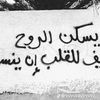 يسكن الروح
يف للقلب إن ينس